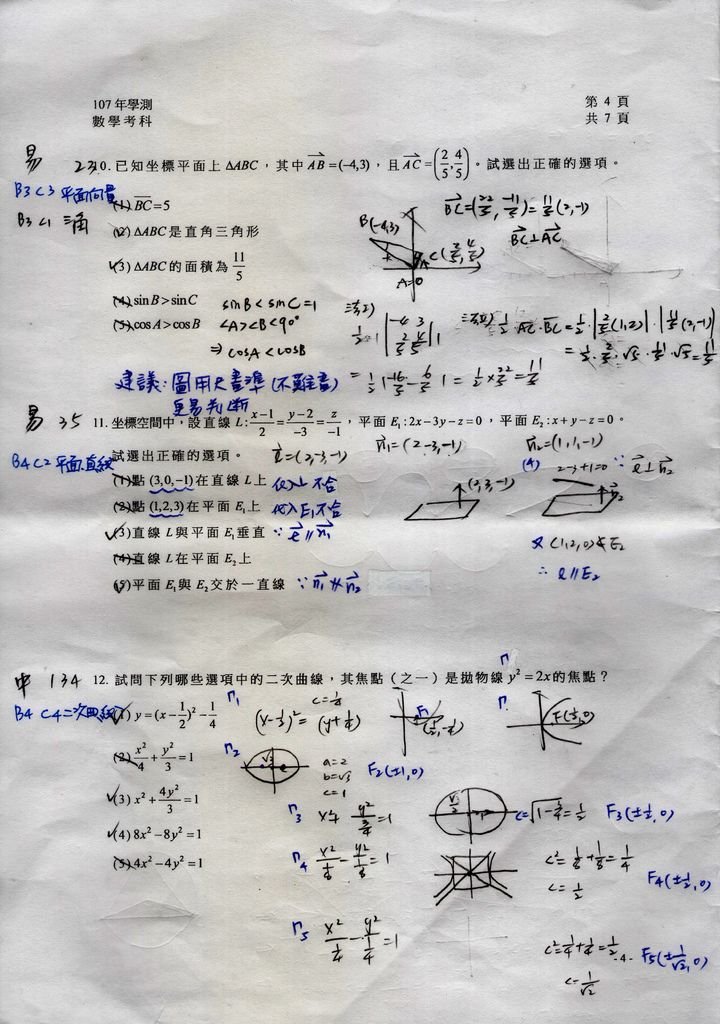 107年學測
數學考科
第 4 頁
共 7 頁
易
23
10. 已知坐標平面上 ΔABC，其中 AB=(-4,3)，且 AC=(2/5, 4/5)。試選出正確的選項。
B3C3 平面向量
B3C1 三角
(1) BC=5
(2) ΔABC 是直角三角形
✓(3) ΔABC 的面積為 11/5
(4) sin B > sin C
(5) cos A > cos B
BC=(22/5, -11/5)=11/5(2,-1)
BC⊥AC
B(-4,3)
C(2/5, 4/5)
A=O
sinB<sinC=1
<A><B<90°
⇒ cosA<cosB
建議:圖用尺畫準(不難畫)
更易判斷
易 35
11. 坐標空間中，設直線 L: (x-1)/2=(y-2)/-3=z/-1，平面 E₁:2x-3y-z=0，平面 E₂:x+y-z=0。
試選出正確的選項。
n₁=(2,-3,-1)
n₂=(1,1,-1)
ℓ=(2,-3,-1)
B4C2 平面直線
(1)點 (3,0,-1) 在直線 L 上 代入L不合
(2)點 (1,2,3) 在平面 E₁ 上 代入E₁不合
✓(3)直線 L 與平面 E₁ 垂直 ∵ ℓ//n₁
(4)直線 L 在平面 E₂ 上
✓(5)平面 E₁ 與 E₂ 交於一直線 ∵ n₁∦n₂
(2,-3,-1)
(4) 2-3+1=0 ∵ ℓ⊥n₂
n₂
又 (1,2,0)∉E₂
∴ ℓ//E₂
中 134
12. 試問下列哪些選項中的二次曲線，其焦點（之一）是拋物線 y²=2x 的焦點？
B4 C4 二次曲線
✓(1) y=(x-1/2)²-1/4
(2) x²/4+y²/3=1
✓(3) x²+4y²/3=1
✓(4) 8x²-8y²=1
(5) 4x²-4y²=1
Γ₁
c=1/4
(x-1/2)²=(y+1/4)
F₁
Γ
F(1/2,0)
Γ₂
a=2
b=√3
c=1
F₂(±1,0)
Γ₃ x²+y²/(3/4)=1
c=√(1-3/4)=1/2
F₃(±1/2,0)
Γ₄ x²/(1/8)-y²/(1/8)=1
c²=1/8+1/8=1/4
c=1/2
F₄(±1/2,0)
Γ₅ x²/(1/4)-y²/(1/4)=1
c²=1/4+1/4=1/2
c=1/√2
F₅(±1/√2,0)
-4-